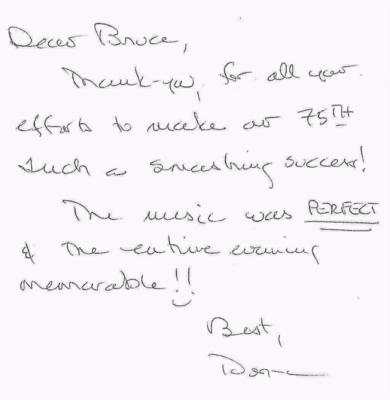 Dear Bruce,
Thank-you, for all your
efforts to make our 75TH
such a smashing success!
The music was PERFECT
& the entire evening
memorable!!
Best,